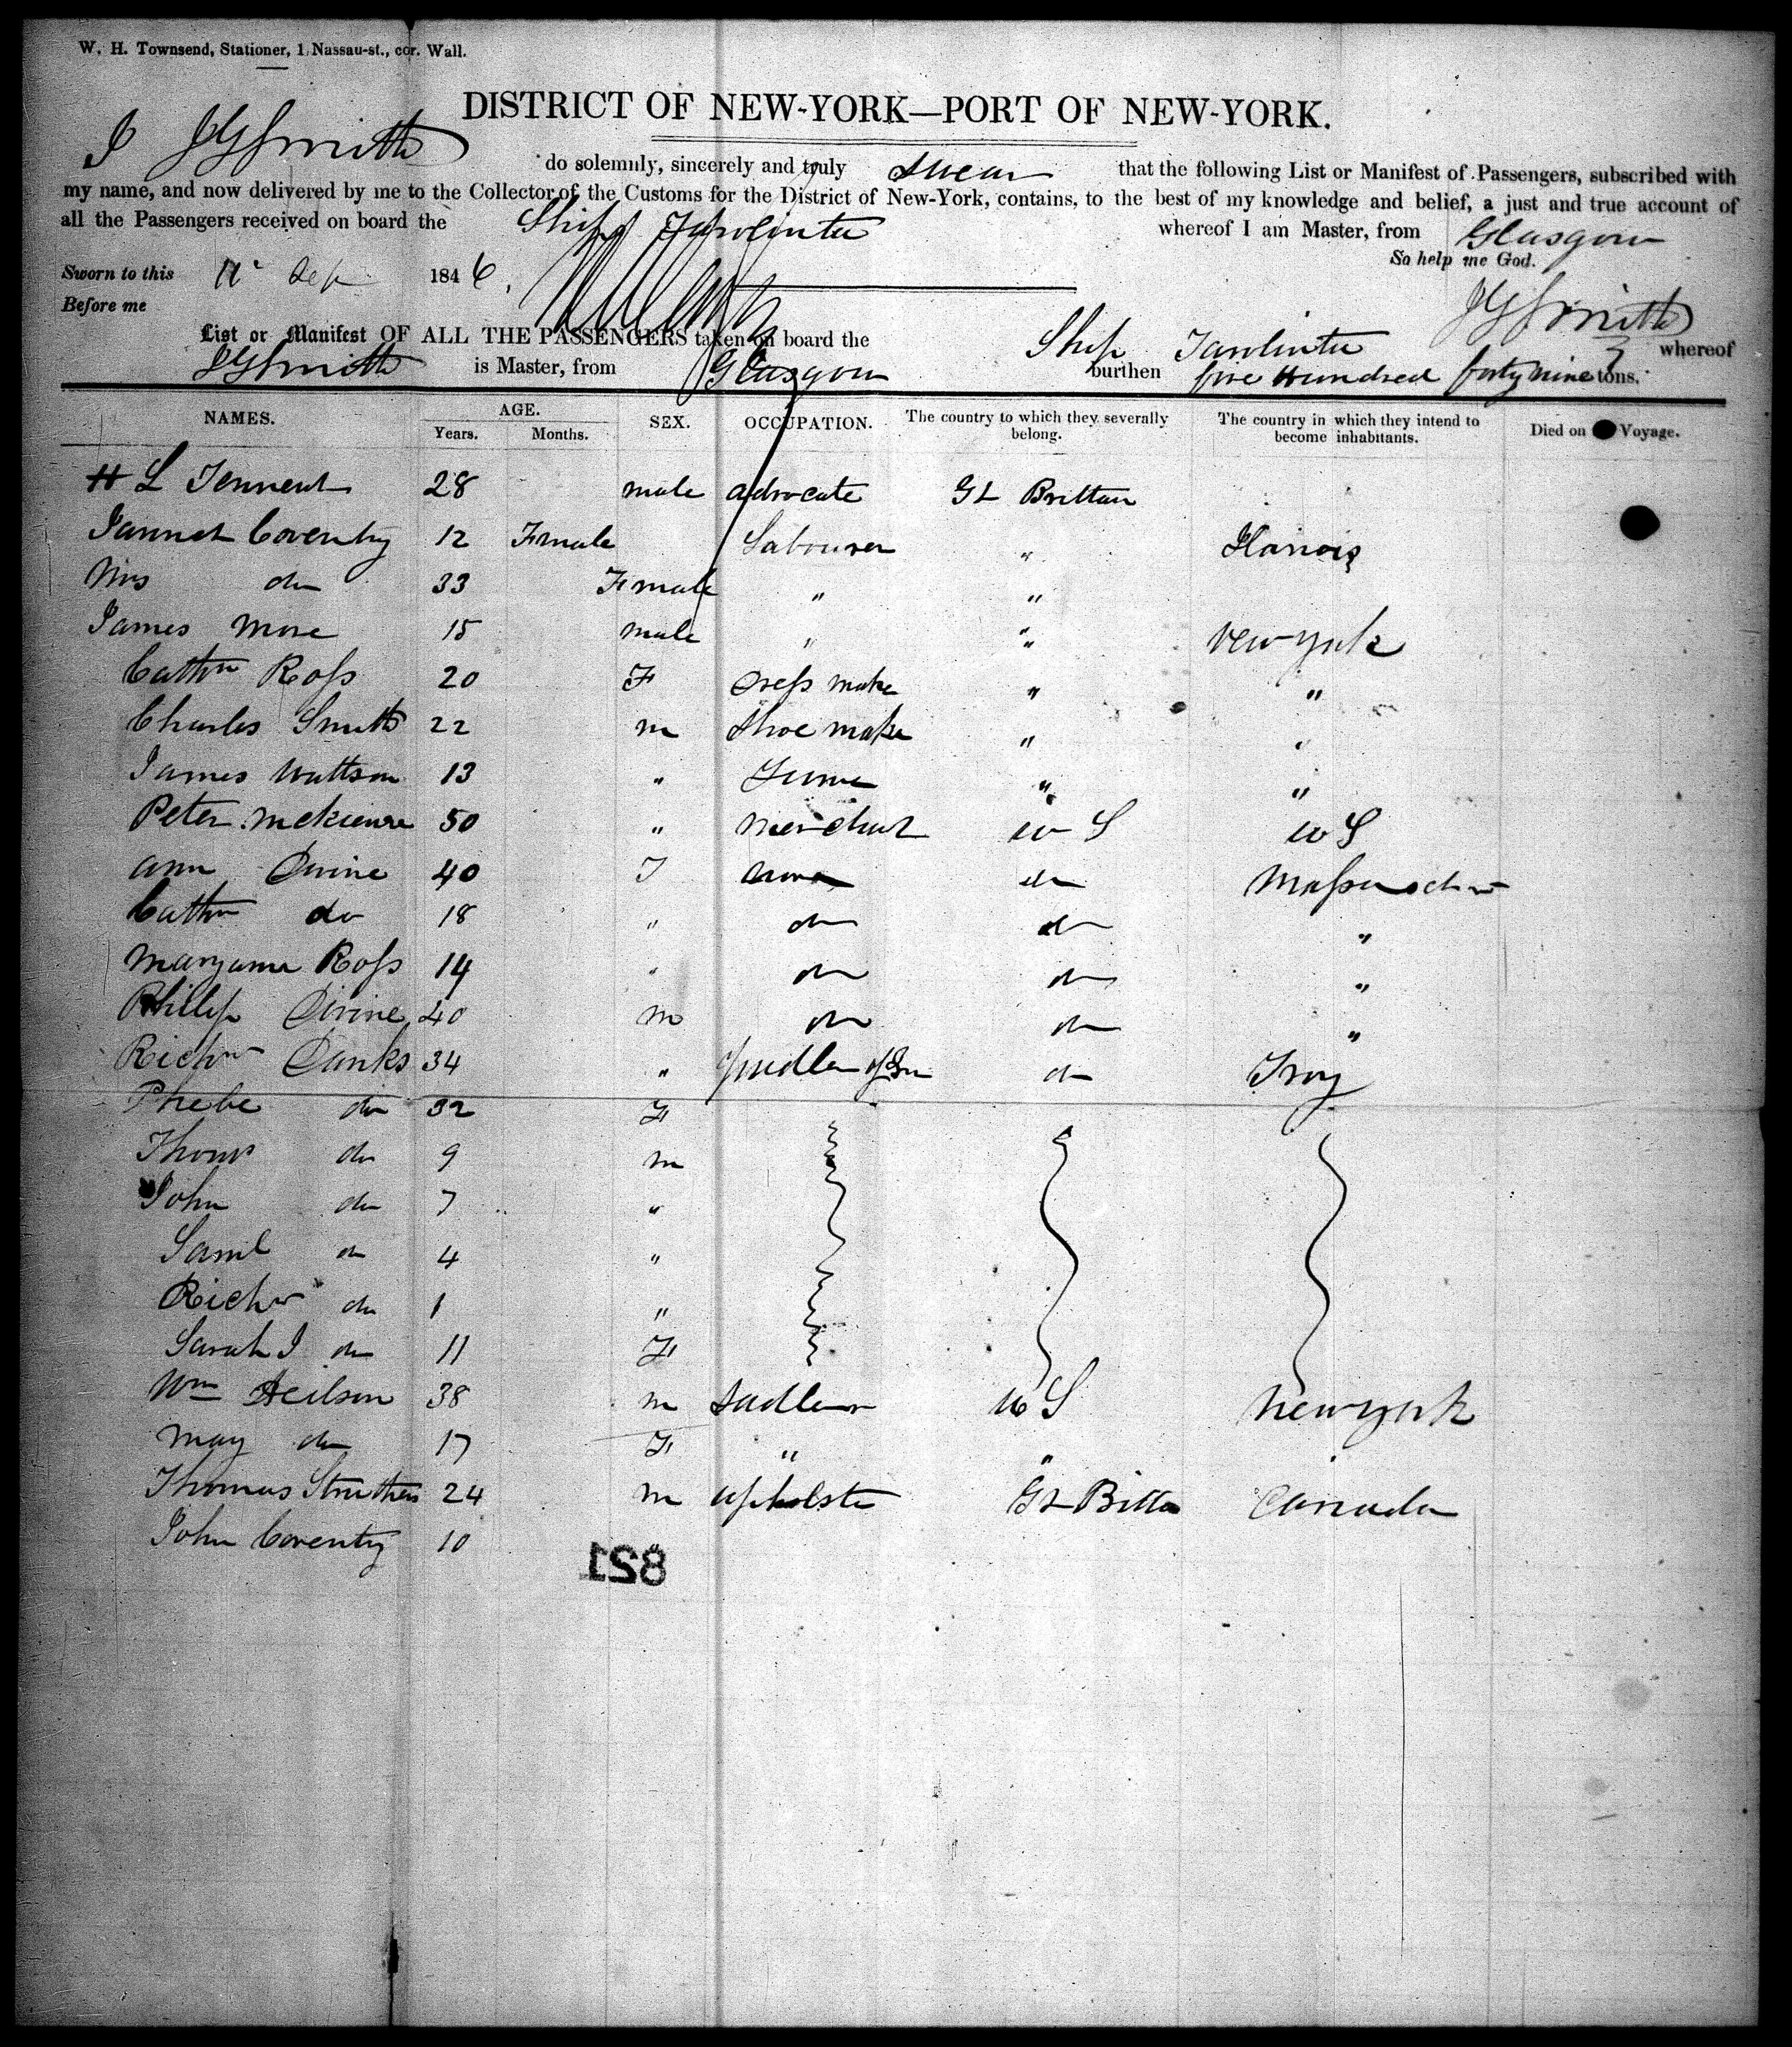 W. H. Townsend, Stationer, 1 Nassau-st., cor. Wall.
DISTRICT OF NEW-YORK—PORT OF NEW-YORK.
I JGSmith do solemnly, sincerely and truly swear that the following List or Manifest of Passengers, subscribed with
my name, and now delivered by me to the Collector of the Customs for the District of New-York, contains, to the best of my knowledge and belief, a just and true account of
all the Passengers received on board the Ship Tarolinta whereof I am Master, from Glasgow
So help me God.
Sworn to this 11 Sep 1846.
Before me
JGSmith
List or Manifest OF ALL THE PASSENGERS taken on board the Ship Tarolinta whereof
JGSmith is Master, from Glasgow burthen five Hundred forty nine tons.
NAMES. AGE. Years. Months. SEX. OCCUPATION. The country to which they severally belong. The country in which they intend to become inhabitants. Died on Voyage.
H L Tennent 28 male advocate Gt Brittan
Jannet Coventry 12 Female Labourer "
Mrs do 33 Female " "
James More 15 male " " New York
Cathn Ross 20 F Dress make " "
Charles Smith 22 m Shoe make " "
James Wattson 13 " "  "
Peter 50 " Merchant U S U S
Ann Divine 40 F none do
Cathn do 18 " do do "
Maryanna Ross 14 " do do "
Phillip Divine 40 m do do "
Richd Danks 34 " do Troy
Phebe do 32 F
Thoms do 9 m
John do 7 "
Saml do 4 "
Richd do 1 "
Sarah J do 11 F
Wm Neilson 38 m Sadler U S New York
May do 17 F " "
Thomas Struthers 24 m upholster Gt Britta Canada
John Coventry 10 "
821